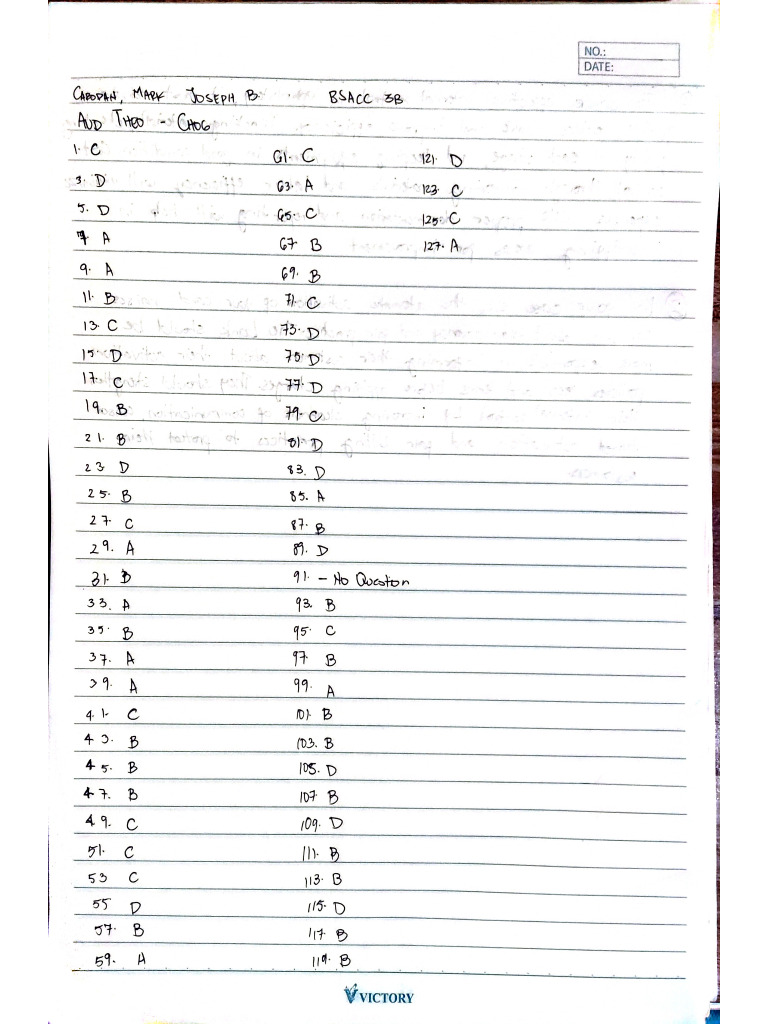 NO.:
DATE:
CABODAN, MARK JOSEPH B. BSACC 3B
AUD THEO - CH06
1. C
3. D
5. D
7 A
9. A
11. B
13. C
15. D
17. C
19. B
21. B
23 D
25. B
27. C
29. A
31. B
33. A
35. B
37. A
39. A
41. C
43. B
45. B
47. B
49. C
51. C
53 C
55 D
57. B
59. A
61. C
63. A
65. C
67 B
69. B
71. C
73. D
75. D
77. D
79. C
81. D
83. D
85. A
87. B
89. D
91. - No Question
93. B
95. C
97 B
99. A
101. B
103. B
105. D
107 B
109. D
111. B
113. B
115. D
117 B
119. B
121. D
123. C
125. C
127. A
VICTORY